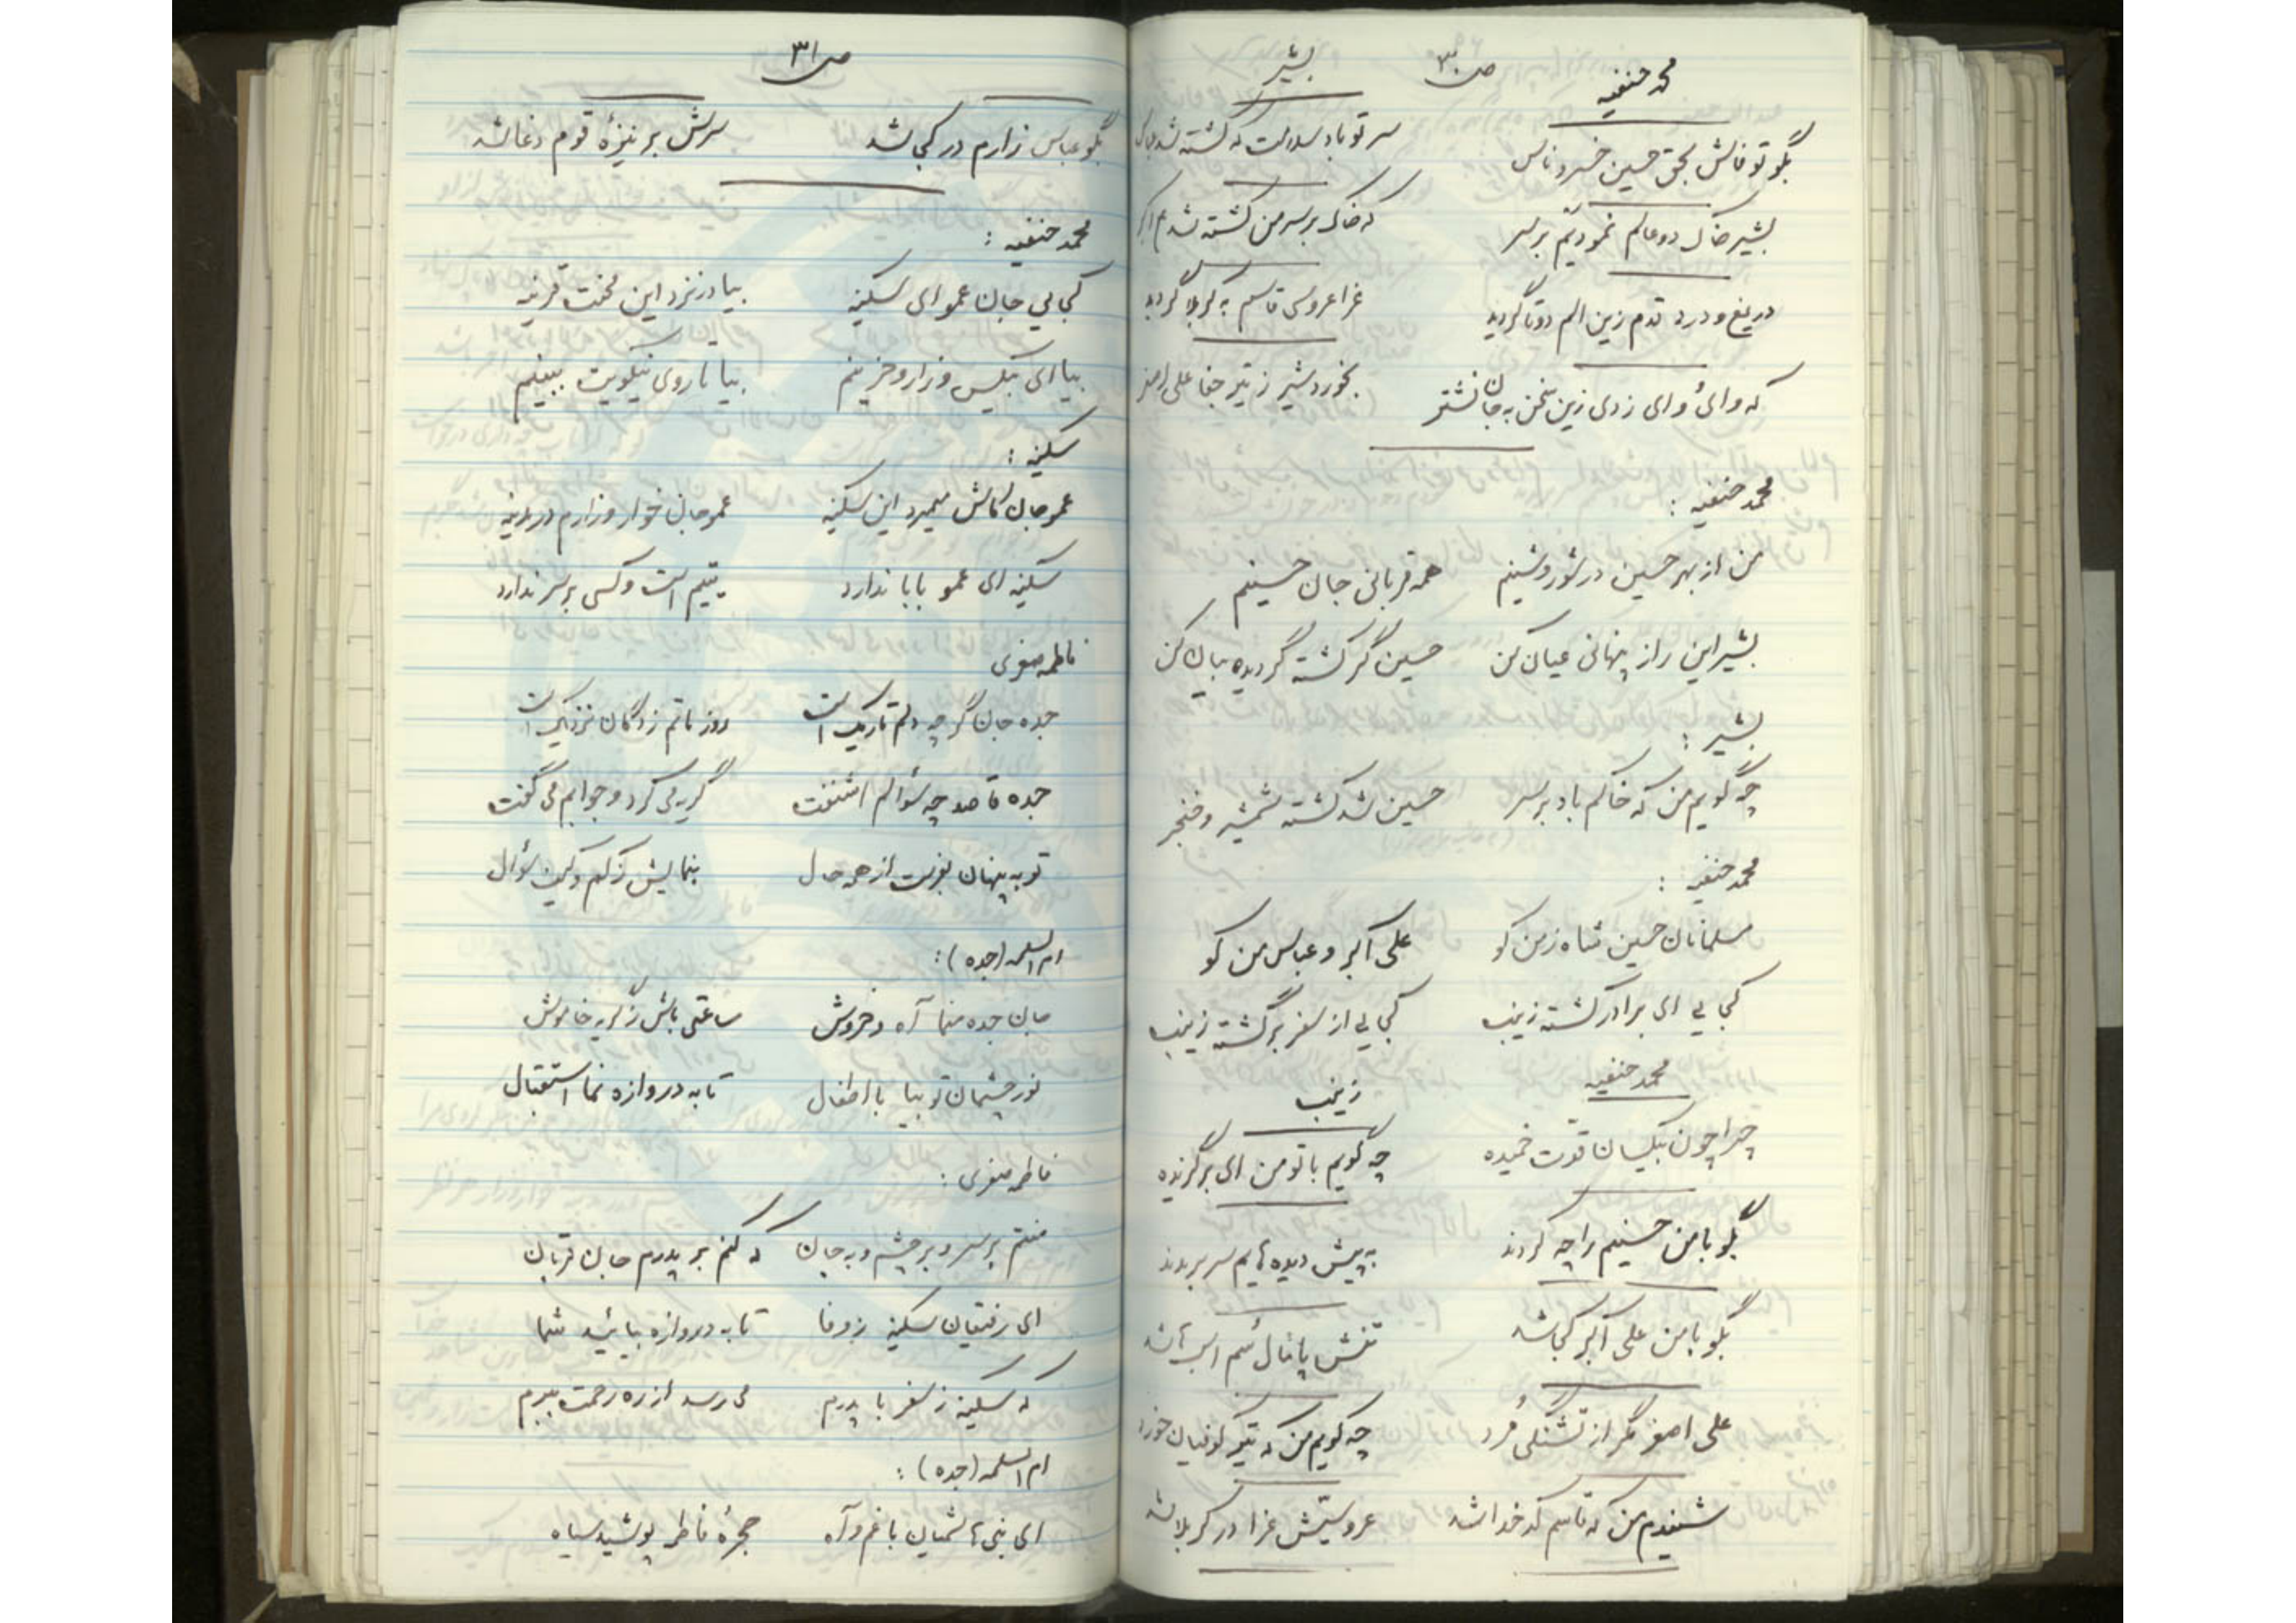 ص ۳۰
محمد حنفیه
بشیر
بگو تو فاش بحق حسین خسرو ناس
سر تو باد سلامت که کشته شد عباس
بشیر خاک دو عالم نمودیَم بر سر
که خاک بر سر من کشته شد
دریغ و درد قدم زین الم دوتا گردید
عزا عروسی قاسم به کربلا گردید
که وای وای زدی زین سخن به جان نشتر
بخورد شیر ز تیر جفا علی اصغر
محمد حنفیه :
من از بهر حسین در شور و شینم
همه قربانی جان حسینم
بشیر این راز پنهانی عیان کن
حسین گر کشته گردیده بیان کن
بشیر :
چه گویم من که خاکم باد بر سر
حسین شد کشته شمشیر و خنجر
محمد حنفیه :
مسلمانان حسین شاه زمن کو
علی اکبر و عباس من کو
کجایی ای برادر کشته زینب
کجایی از سفر برگشته زینب
محمد حنفیه
زینب
چرا چون بیکسان قدّت خمیده
چه گویم با تو من ای برگزیده
بگو با من حسینم را چه کردند
به پیش دیده هایم سر بریدند
بگو با من علی اکبر کجا شد
تنش پامال سُم اسب ها شد
علی اصغر مگر از تشنگی مُرد
چه گویم من که تیر کوفیان خورد
شنیدم من که قاسم کدخدا شد
عروسیّش عزا در کربلا شد
ص ۳۱
بگو عباس زارم در کجا شد
سرش بر نیزهٔ قوم دغا شد
محمد حنفیه :
کجایی جان عمو ای سکینه
بیا در نزد این محنت قرینه
بیا ای بیکس و زار و حزینم
بیا تا روی نیکویت ببینم
سکینه :
عمو جان کاش میمیرد این سکینه
عمو جان خوار و زارم در مدینه
سکینه ای عمو بابا ندارد
یتیم است و کسی بر سر ندارد
فاطمه صغری
جده جان گر چه دلم تاریک است
روز ماتم زدگان نزدیک است
جده قاصد چه سؤالم اشنفت
گریه می کرد و جوابم می گفت
تو به پنهان بفرست از همه حال
بنمایش ز کم و کیف سؤال
ام السلمه (جده) :
جان جده منما آه و خروش
ساعتی باش ز گریه خاموش
نور چشمان تو بیا با اطفال
تا به دروازه نما استقبال
فاطمه صغری :
منتم بر سر و بر چشم و به جان
که کنم بر پدرم جان قربان
ای رفیقان سکینه ز وفا
تا به دروازه بیائید شما
که سکینه ز سفر با پدرم
می رسد از ره رحمت ببرم
ام السلمه (جده) :
ای بنی هاشمیان با غم و آه
حجرهٔ فاطمه پوشید سیاه